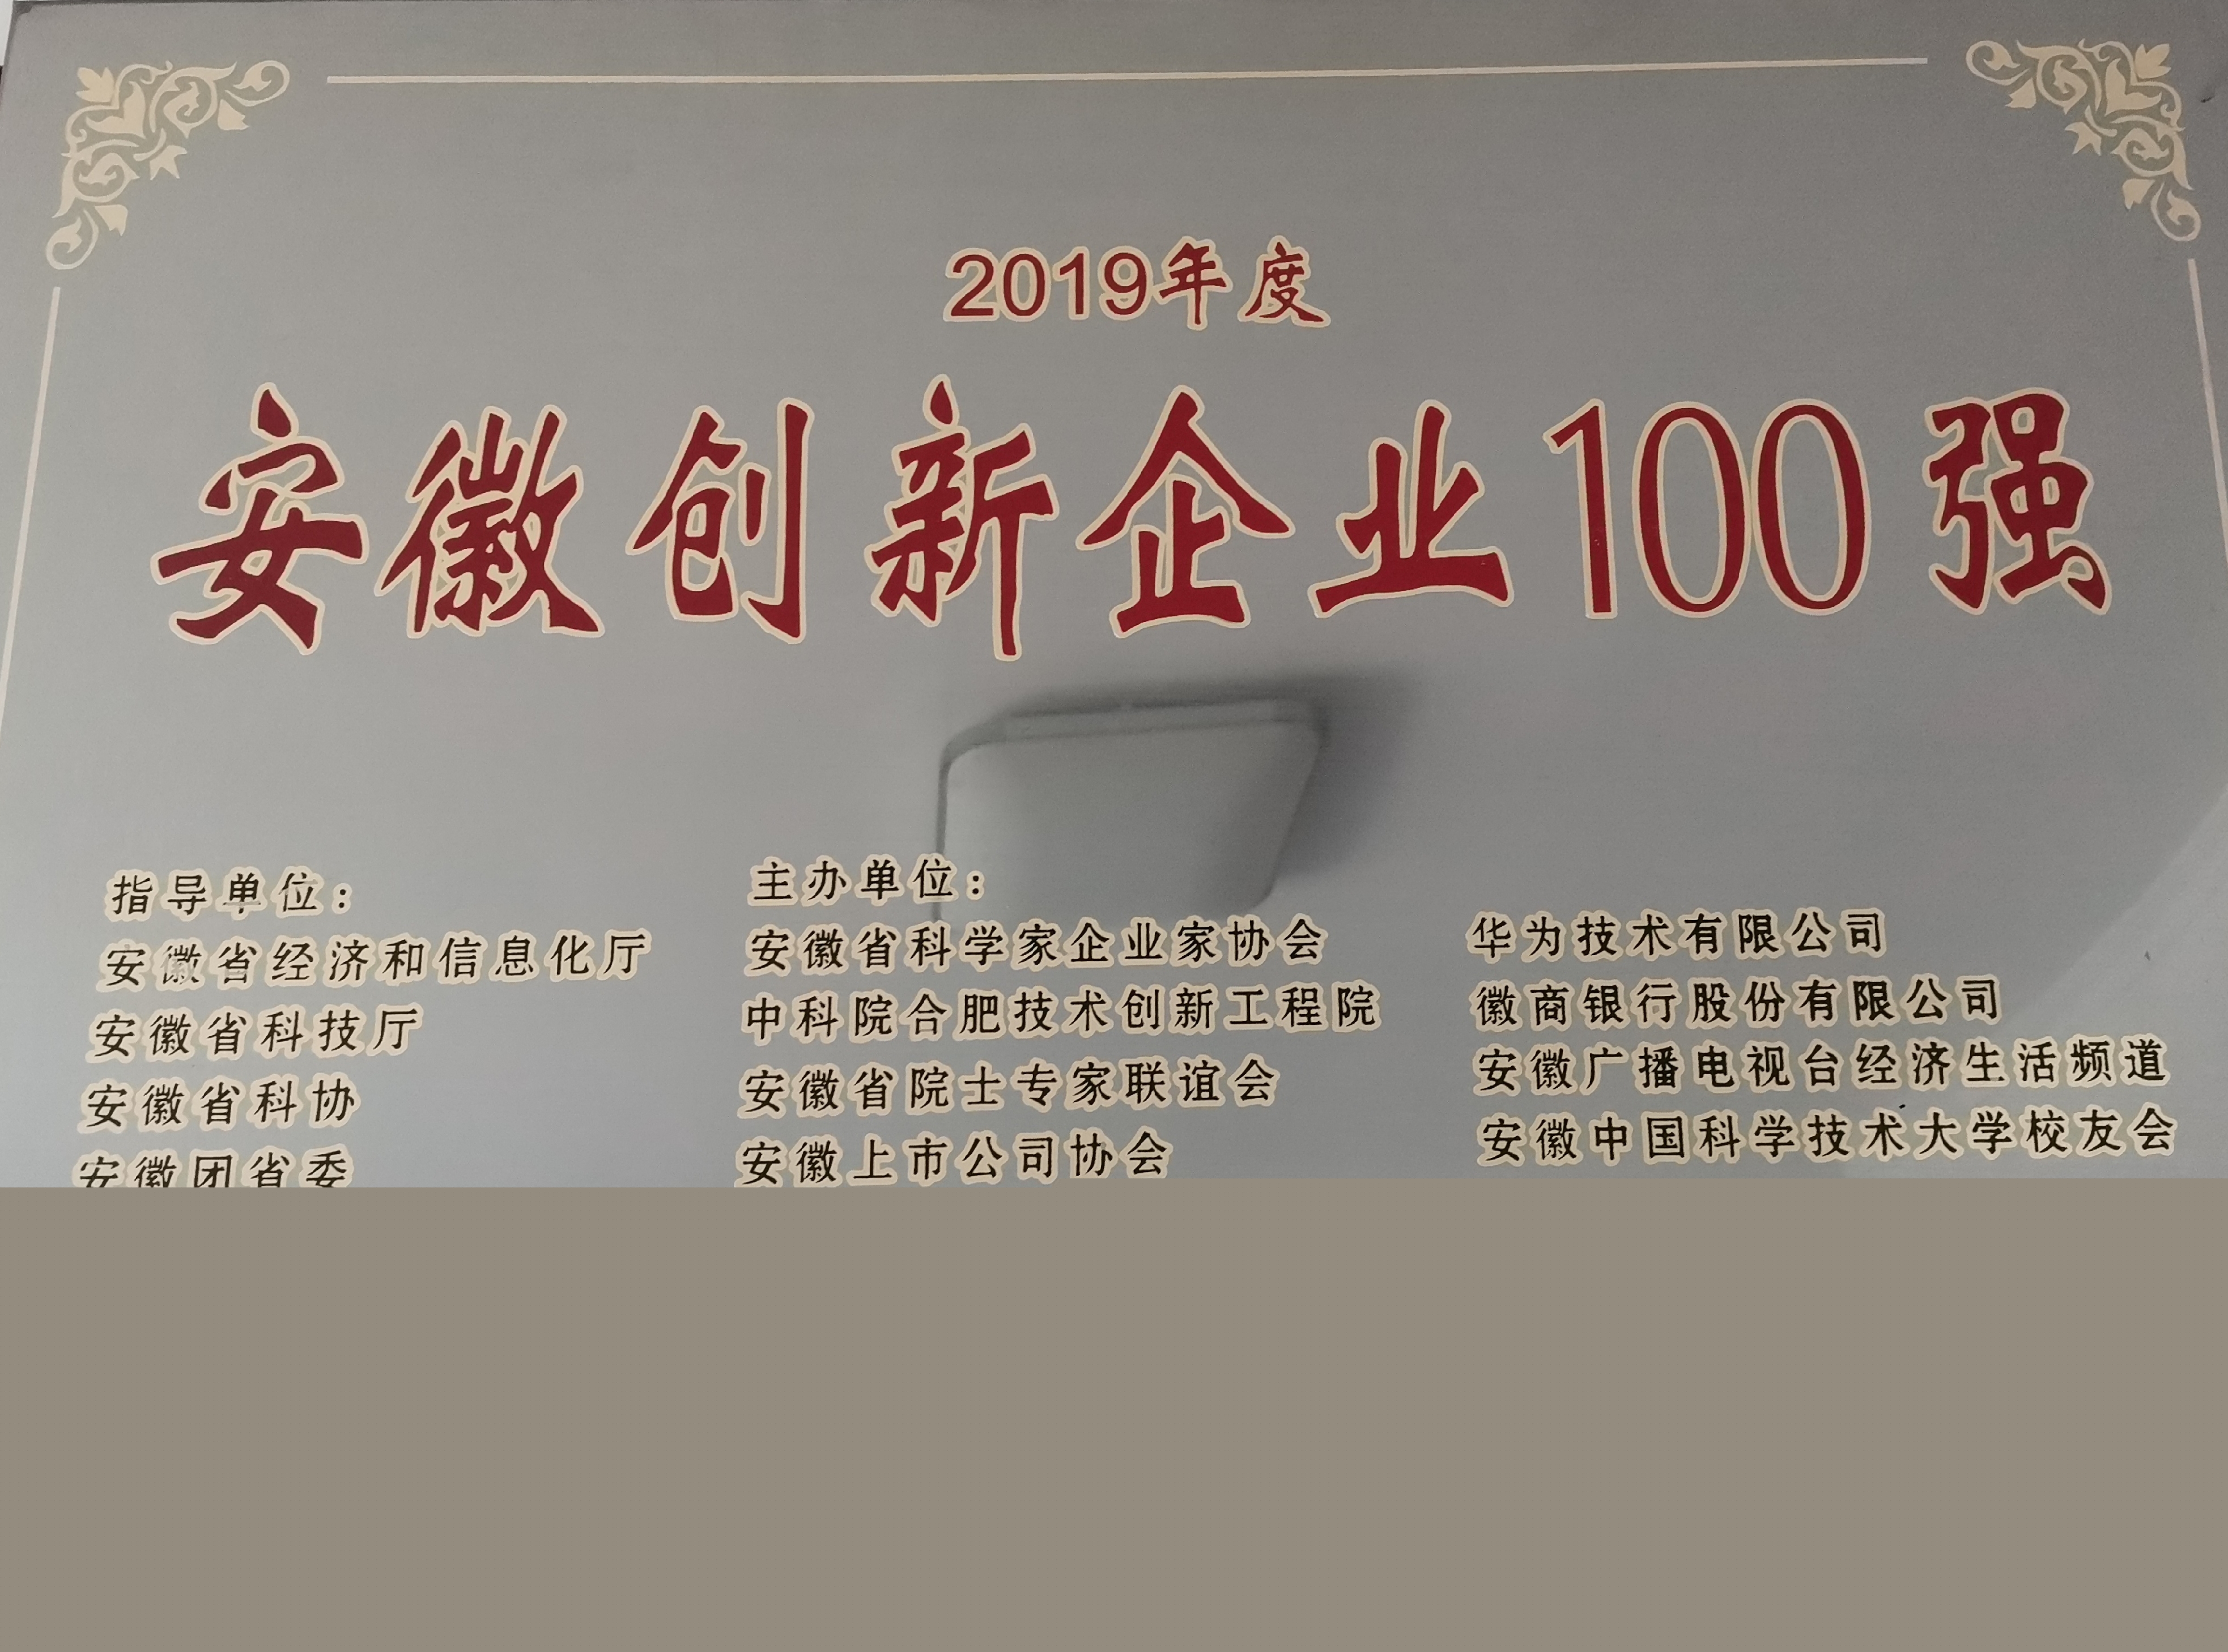 2019年度
安徽创新企业100强
指导单位：
安徽省经济和信息化厅
安徽省科技厅
安徽省科协
安徽团省委
主办单位：
安徽省科学家企业家协会
中科院合肥技术创新工程院
安徽省院士专家联谊会
安徽上市公司协会
华为技术有限公司
徽商银行股份有限公司
安徽广播电视台经济生活频道
安徽中国科学技术大学校友会